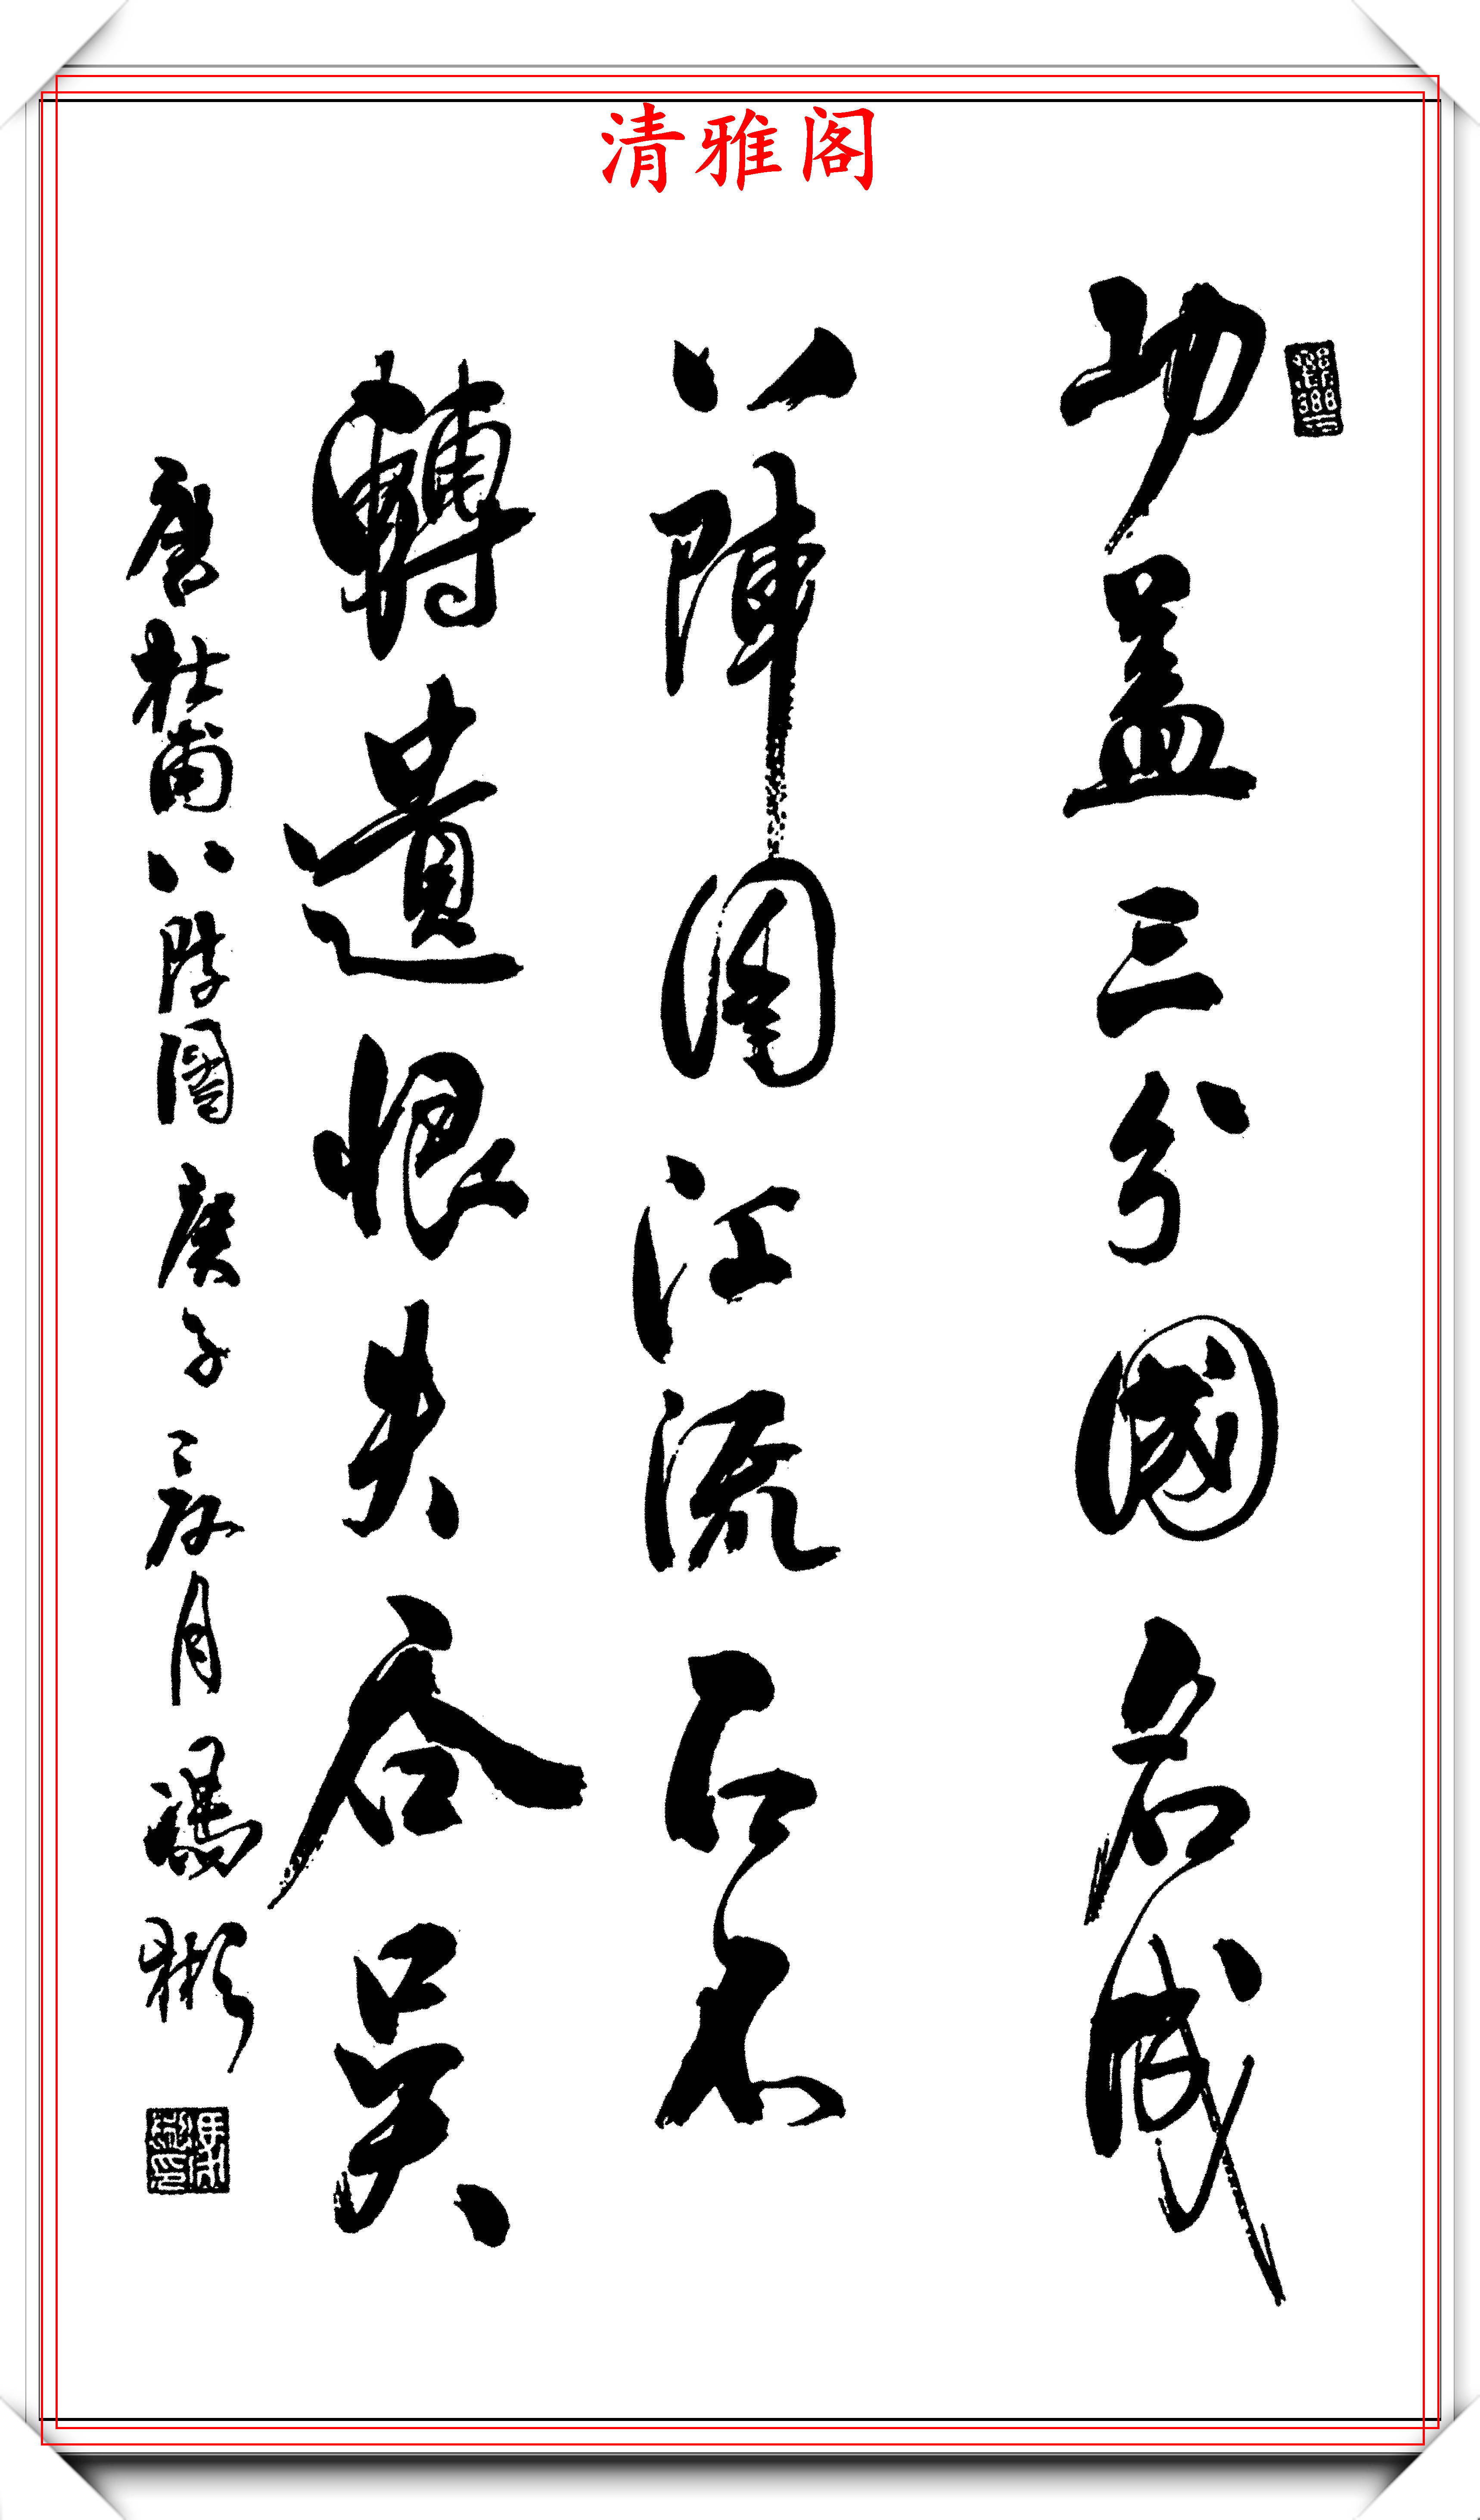 清雅阁
功盖三分國名成
八陣圖江流石不
轉遺恨失吞吳
唐杜甫八陣圖 庚子 月